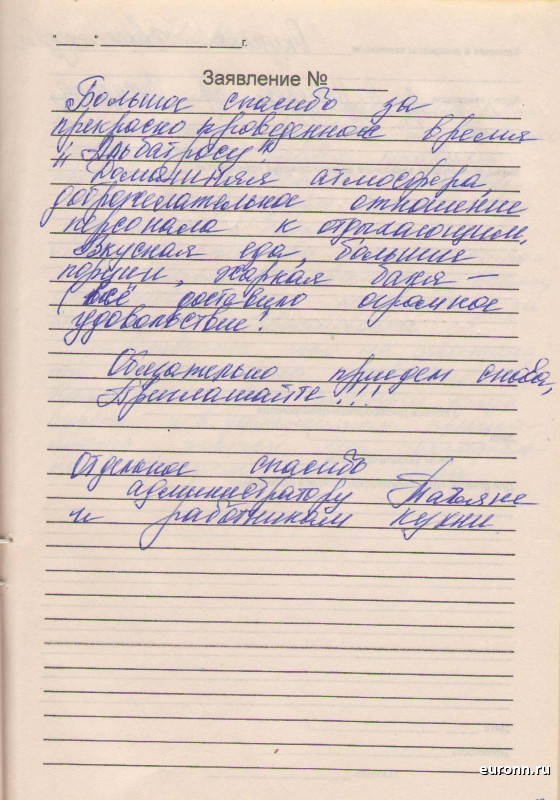 "____"____________________г.
Заявление №_____
Большое спасибо за
прекрасно проведенное время
"Альбатросу"!
Домашняя атмосфера,
доброжелательное отношение
персонала к отдыхающим,
вкусная еда, большие
порции, жаркая баня –
всё доставило огромное
удовольствие!
Обязательно приедем снова,
Приглашайте!!!
Отдельное спасибо
администратору Татьяне
и работникам кухни
euronn.ru